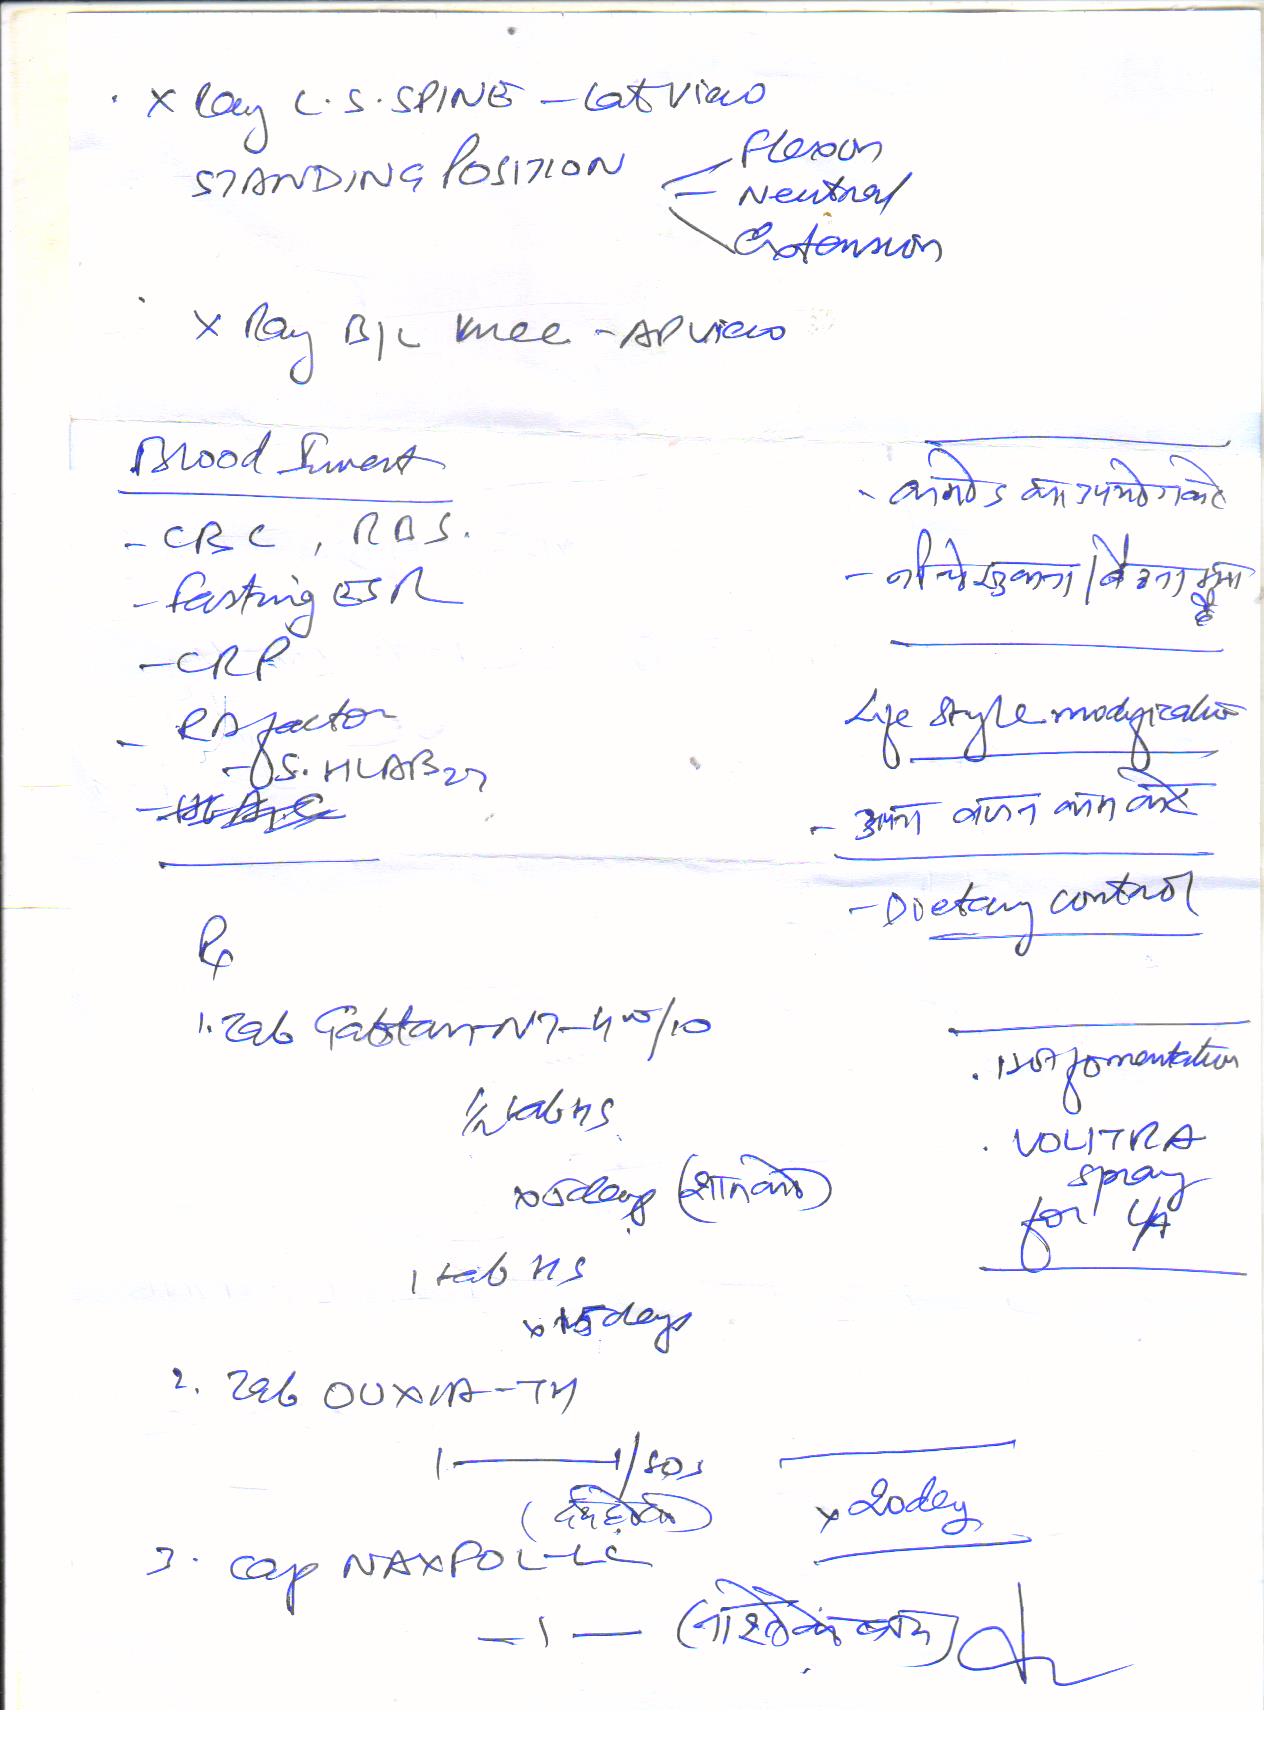 X Ray L.S. SPINE - Lat View
STANDING POSITION
Flexion
Neutral
Extension
X Ray B/L Knee - AP View
Blood Invest
- CBC, RBS.
- fasting ESR
- CRP
- RA factor
- S. HLAB27
Rx
1. Tab Gabtam-NT-400/10
1/2 tab HS
x 5 days
1 tab HS
x 15 days
2. Tab OUXIA-TH
1 — 1/SOS
3. Cap NAXPOL-LC
— 1 — (नाश्ते के बाद)
- कमोड का उपयोग करे
- नीचे झुकना/बैठना
Life style modification
- वजन कम करे
- Dietary control
. Hot fomentation
. VOLITRA
spray
for L/A
x 20 day